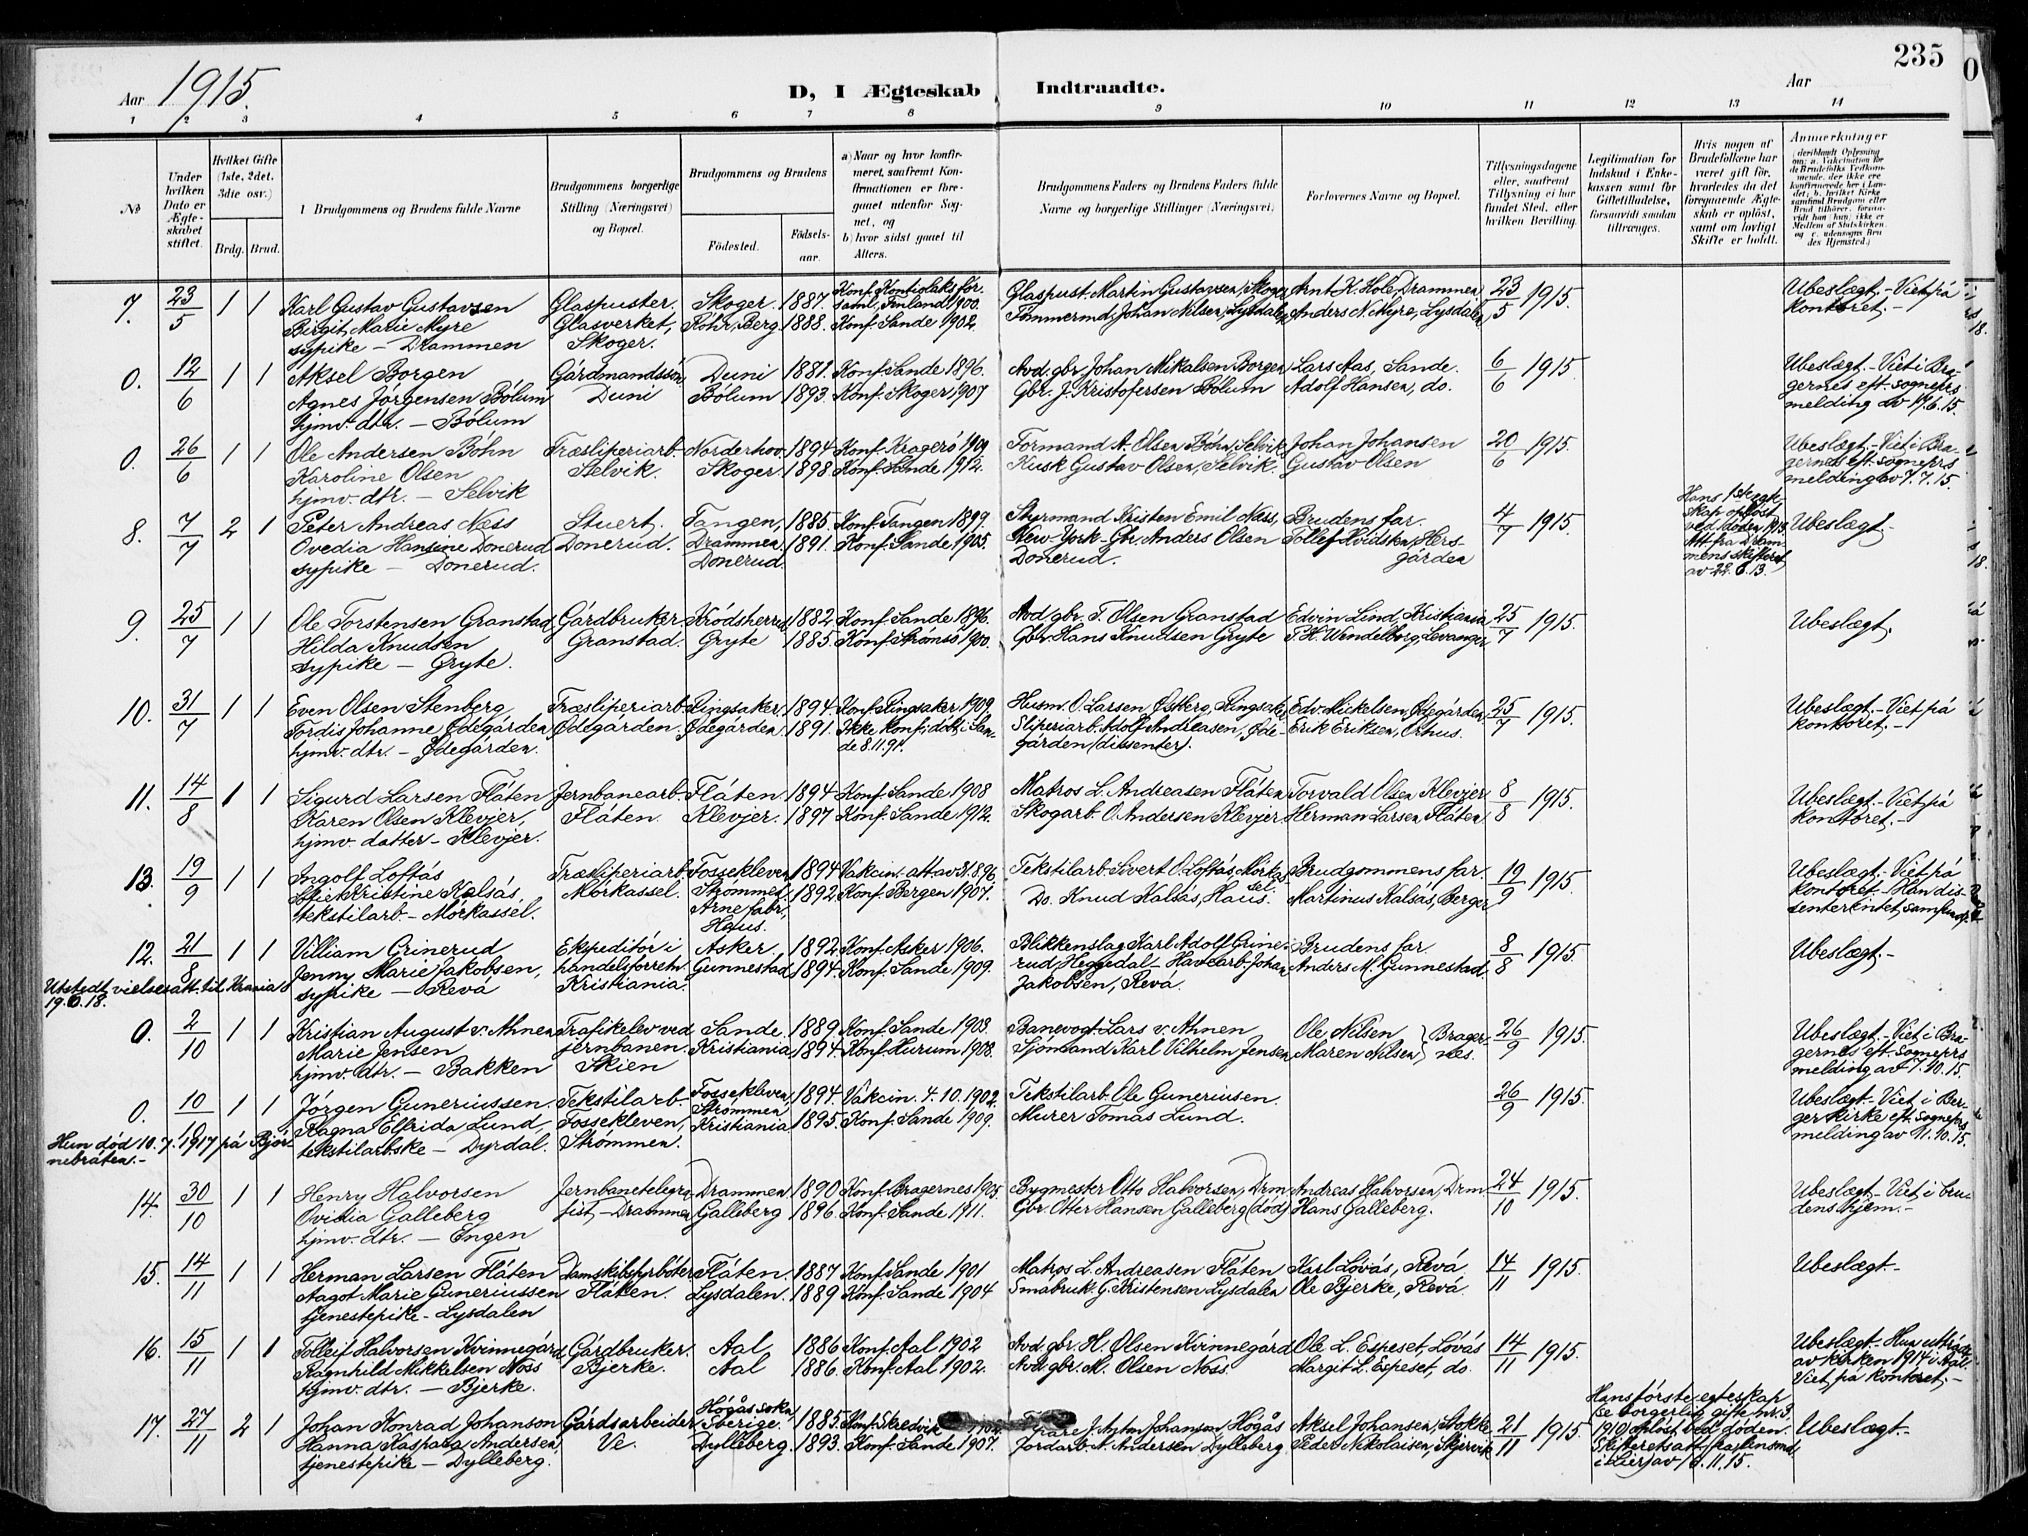 235
Aar 1915.
D, I Ægteskab Indtraadte.
Aar
1 2 3 4 5 6 7 8 9 10 11 12 13 14
No
Under hvilken Dato er Ægteskabet stiftet.
Hvilket Gifte (1ste, 2det, 3die osv.)
Brdg. Brud.
Brudgommens og Brudens fulde Navne
Brudgommens borgerlige Stilling (Næringsvei) og Bopæl.
Brudgommens og Brudens
Fødested. Fødsels-aar.
a) Naar og hvor konfirmeret, saafremt Konfirmationen er foregaaet udenfor Sognet, og
b) hvor sidst gaaet til Alters.
Brudgommens Faders og Brudens Faders fulde Navne og borgerlige Stillinger (Næringsvei)
Forlovernes Navne og Bopæl.
Tillysningsdagene eller, saafremt Tillysning ei har fundet Sted, efter hvilken Bevilling.
Legitimation for Indskud i Enkekassen samt for Giftetilladelse, forsaavidt saadan tiltrænges.
Hvis nogen af Brudefolkene har været gift før, hvorledes da det foregaaende Ægteskab er opløst, samt om lovligt Skifte er holdt.
Anmerkninger (deriblandt Oplysning om: a. Vakcination for de Brudefolks Vedkommende, der ikke ere konfirmerede her i Landet; b. hvilket Kirkesamfund Brudgom eller Brud tilhører, forsaavidt han (hun) ikke er Medlem af Statskirken, og c. udensogns Brudes Hjemsted.)
7. 23/5 1 1 Karl Gustav Gustavsen Glaspuster, Skoger. 1887. Konf. Kontiolaks for- Glaspust. Martin Gustavsen, Skoger Arnt K. Hole, Drammen, 23/5 1915. Ubeslægt. - Viet på
Birgit Marie Myre Glasverket, Rohr, Berg 1888. saml. Finland 1900. Konf. Sande 1902. Tømmermd. Johan Nilsen, Lysdalen Anders N. Myre, Lysdalen kontoret. -
sypike - Drammen Skoger.
0. 12/6 1 1 Aksel Borgen Gårdmandssøn Duni 1881. Konf. Sande 1896. Avd. gbr. Johan Mikalsen Borgen Lars Aas, Sande. 6/6 1915. Ubeslægt. - Viet i Bra-
Agnes Jørgensen Bølum Duni Bølum 1893. Konf. Skoger 1907 Gbr. J. Kristofersen Bølum Adolf Hansen, do. gernes eft. sogneprs
hjmv. dtr. - Bølum melding av 17.6.15.
0. 26/6 1 1 Ole Andersen Bøhn Træsliperiarb. Norderhov 1894 Konf. Kragerø 1909. Formand A. Olsen Bøhn, Selvik Johan Johansen 20/6 1915. Ubeslægt. - Viet i Bra-
Karoline Olsen Selvik. Skoger 1898 Konf. Sande 1912. Kusk Gustav Olsen, Selvik. Gustav Olsen gernes eft. sogneprs
hjmv. dtr. - Selvik melding av 7.7.15.
8. 7/7 2 1 Peter Andreas Næss Stuert. Tangen, 1885. Konf. Tangen 1899. Styrmand Kristen Emil Næss, Brudens far. 4/7 1915. Hans 1ste egte- Ubeslægt. -
Ovedia Hansine Donerud Donerud. Drammen. 1891. Konf. Sande 1905. New-York - Gbr. Anders Olsen Tollef Hvidsten, Hers- skap opløst ved døden 1913.
sypike - Donerud. Donerud Donerud. gården Att. fra Drammens skifteret av 22.8.13.
9. 25/7 1 1 Ole Torstensen Granstad Gårdbruker. Krødsherred 1882 Konf. Sande 1896. Avd. gbr. T. Olsen Granstad Edvin Lind, Kristiania 25/7 1915. Ubeslægt.
Hilda Knudsen Granstad. Gryte 1885. Konf. Strømsø 1900. Gbr. Hans Knudsen Gryte T. H. Wendelborg, Levanger
sypike - Gryte.
10. 31/7 1 1 Even Olsen Stenberg Træsliperiarb. Ringsaker. 1894 Konf. Ringsaker 1909. Husm. O. Larsen Østbrg, Ringsaker Edv. Mickelsen, Ødegården 25/7 1915. Ubeslægt. - Viet på
Tordis Johanne Ødegården, Ødegården. Ødegården 1891. Ikke konf.; døbt i San- Sliperiarb. Adolf Andreasen, Øde- Erik Eriksen, Orhus. kontoret. -
hjmv. dtr. - Ødegården. de 8.11.91. gården (dissenter).
11. 14/8 1 1 Sigurd Larsen Flåten Jernbanearb. Flåten. 1894 Konf. Sande 1908 Matros L. Andreasen Flåten Torvald Olsen Klevjer 8/8 1915. Ubeslægt. - Viet på
Karen Olsen Klevjer, Flåten. Klevjer. 1897 Konf. Sande 1912. Skogarb. O. Andersen Klevjer. Herman Larsen Flåten kontoret. -
hjmv. datter - Klevjer.
13. 19/9 1 1 Ingolf Loftås Træsliperiarb. Fossekleven 1894 Vakcin. att. av 31.8.96 Tekstilarb. Sivert O. Loftås, Mörkas- Brudgommens far. 19/9 1915. Ubeslægt. - Viet på
Sofie Kristine Kalsås, Mörkassel. Strømmen 1892 Konf. Bergen 1907. sel. Do. Knud Kalsås, Haus. Martinus Kalsås, Berger kontoret. - Han dis-
tekstilarb. - Mörkassel. Arne fabr. Haus. senter intet samfund.
12. 21/8 1 1 Villiam Grinerud Ekspeditør i Asker, 1892 Konf. Asker 1906. Blikkenslag. Karl Adolf Grine- Brudens far 8/8 1915. Ubeslægt. -
Jenny Marie Jakobsen, handelsforretn. Gunnestad 1894. Konf. Sande 1909. rud, Heggedal - Havearb. Johan Anders M. Gunnestad.
sypike - Revå Kristiania. Jakobsen, Revå.
Utstedt vielsesatt. til Krania 19.6.18.
0. 2/10 1 1 Kristian August v. Ahnen Trafikelev ved Sande. 1889 Konf. Sande 1903. Banevogt Lars v. Ahnen Ole Nilsen } Brager- 26/9 1915. Ubeslægt. - Viet i Bra-
Marie Jensen jernbanen. Kristiania 1894. Konf. Hurum 1908. Sjømand Karl Vilhelm Jensen Maren Nilsen } nes. gernes eft. sogneprs
hjmv. dtr. - Bakken Skien melding av 7.10.15.
0. 10/10 1 1 Jørgen Guneriussen Tekstilarb. Fossekleven, 1894. Vakcin. 4.10.1902. Tekstilarb. Ole Guneriusen. 26/9 1915. Ubeslægt. - Viet i Ber-
Ragna Elfrida Lund, Fossekleven, Strømmen 1895. Konf. Sande 1909. Murer Tomas Lund. ger kirke eft. sogneprs
tekstilarbske - Dyrdal. Strømmen. Kristiania melding av 11.10.15.
Hun død 10.7.1917 på Bjør-
nebråten. -
14. 30/10 1 1 Henry Halvorsen Jernbanetelegra- Drammen 1890 Konf. Bragernes 1905. Bygmester Otto Halvorsen, Drm Andreas Halvorsen, Drm 24/10 1915. Ubeslægt. - Viet i bru-
Ovidia Galleberg fist - Drammen Galleberg 1896. Konf. Sande 1911. Gbr. Otter Hansen Galleberg (død) Hans Galleberg. dens hjem. -
hjmv. dtr. - Engen
15. 14/11 1 1 Herman Larsen Flåten Damskibsfyrbøter Flåten. 1887 Konf. Sande 1901 Matros L. Andreasen Flåten Karl Løvås, Revå 14/11 1915. Ubeslægt. -
Aagot Marie Guneriussen Flåten. Lysdalen. 1889 Konf. Sande 1904 Småbruk. G. Kristensen Lysdalen Ole Bjerke, Revå.
tjenestepike - Lysdalen
16. 15/11 1 1 Tolleif Halvorsen Kvinnegård Gårdbruker. Aal, 1886 Konf. Aal 1902 Avd. gbr. H. Olsen Kvinnegård Ole L. Espeset, Løvås 14/11 1915. Ubeslægt. - Hun uttrådt
Ragnhild Mikkelsen Noss Bjerke. Aal 1886 Konf. Aal 1902. Avd. gbr. M. Olsen Noss. Margit L. Espeset, do. av kirken 1914 i Aal.
hjmv. dtr. - Bjerke. Viet på kontoret. -
17. 27/11 2 1 Johan Konrad Johanson Gårdsarbeider Högås sokn Sverige. 1885. Konf. Skredvik 1902. J. Anton Johanson, Högås Aksel Johansen, Stokke 21/11 1915. Hans første egteskap Ubeslægt. -
Hanna Kaspara Andersen, Ve. Dylleberg. 1893. Konf. Sande 1907. Jordarb. A. Andersen Dylleberg Peder Nikolaisen, Skjervik (se borgerlig gifte nr. 3 1910) opløst ved døden.
tjenestepike - Dylleberg. Skifteretsatt. fra lensmd. i Lier av 16.11.15.